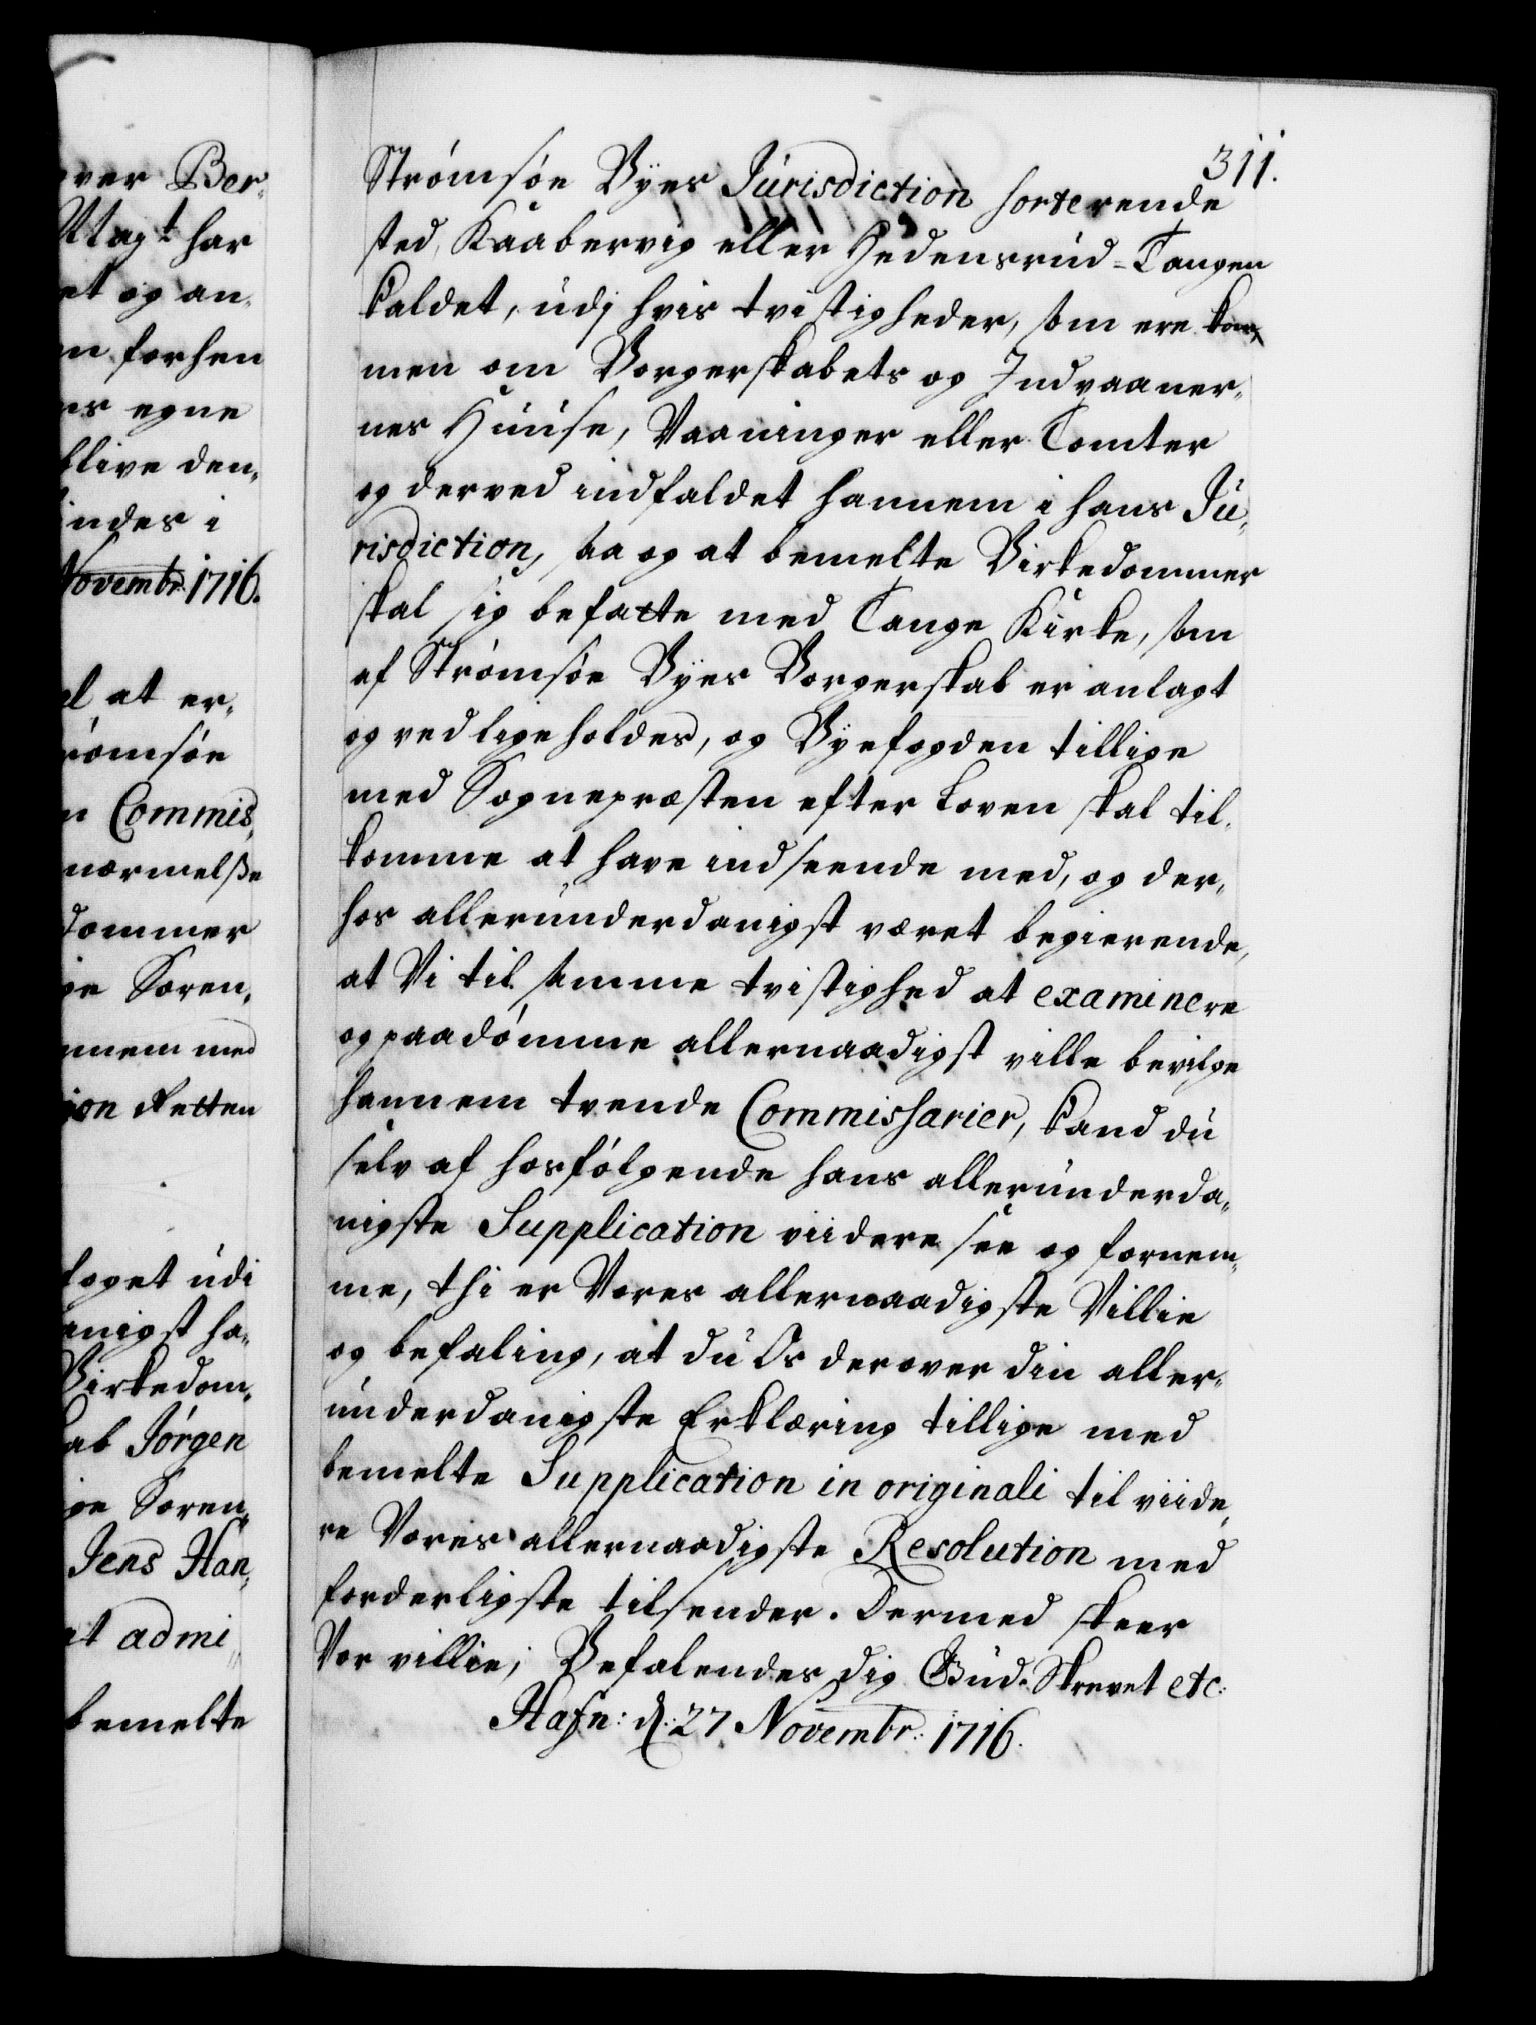 over Ber-
Magt har
et og an-
n forhen
ns egne
blive den,
indes i
Novembr: 1716.
el at er-
römsöe
n Commis,
nærmelsse
dommer
ge Sören,
nnem med
ion Retten
foget udi
anigst ha-
Birkedom,
ab Jörgen
ge Sören,
Jens Han,
at admi,
bemelte
311.
Strömsöe Byes Jurisdiction sorterende
sted, Kaaberviig eller Hedensrud-Tangen
kaldet, udj hvis tvistigheder, som ere kom,
men om Borgerskabets og Indvaaner,
nes Huuse, Vaaninger eller Tomter
og derved indfaldet hannem i hans Ju,
risdiction, saa og at bemelte Birkedommer
skal sig befatte med Tange Kirke, som
af Strömsöe Byes Borgerskab er anlagt
og vedligeholdes, og Byefogden tillige
med Sognepræsten efter Loven skal til-
komme at have indseende med, og der,
hos allerunderdanigst været begierende,
at Vi til samme tvistighed at examinere
og paadömme allernaadigst ville bevilge
hannem tvende Commissarier, kand du
selv af hosfölgende hans allerunderda,
nigste Supplication viidere see og fornem,
me, thi er Vores allernaadigste Villie
og befaling, at du Os derover din aller,
underdanigste Erklæring tillige med
bemelte Supplication in originali til viide,
re Vores allernaadigste Resolution med
forderligste tilsender. Dermed skeer
Vor villie; Befalendes dig Gud. Skrevet etc:
Hafn: d: 27 Novembr: 1716.